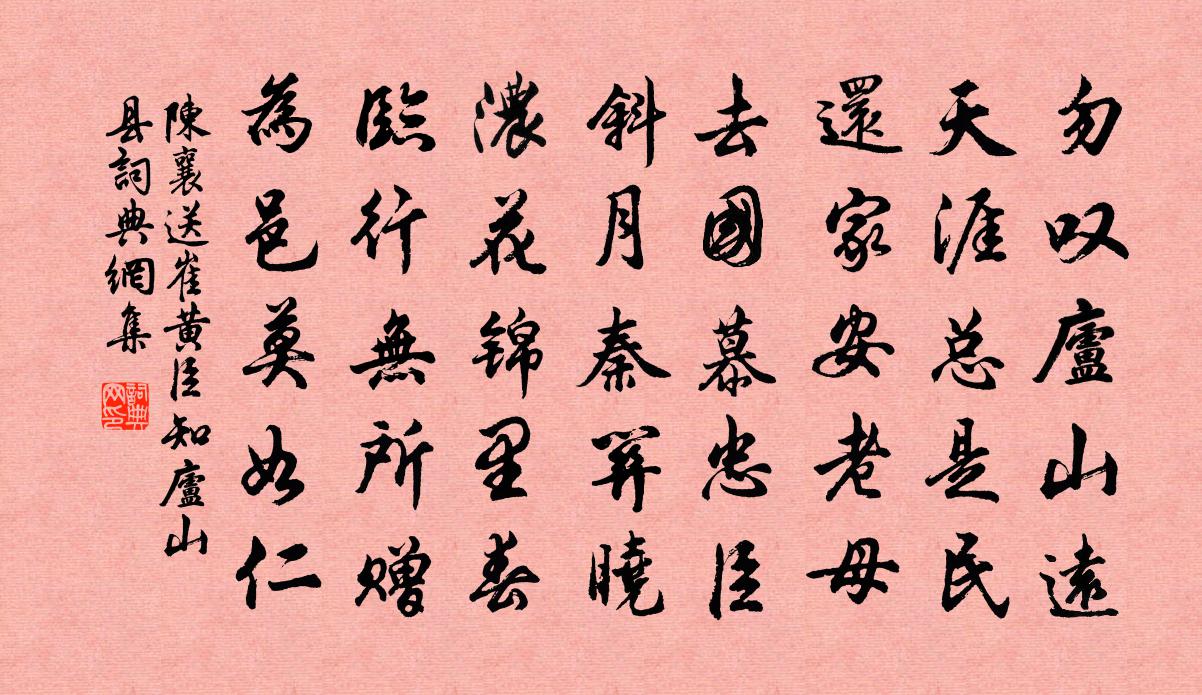 勿叹廬山遠
天涯总是民
還家安老母
去國慕忠臣
斜月秦関曉
濃花锦里春
臨行無所赠
為邑莫如仁
陳襄送崔黄臣知廬山
县詞典網集
詞典网印